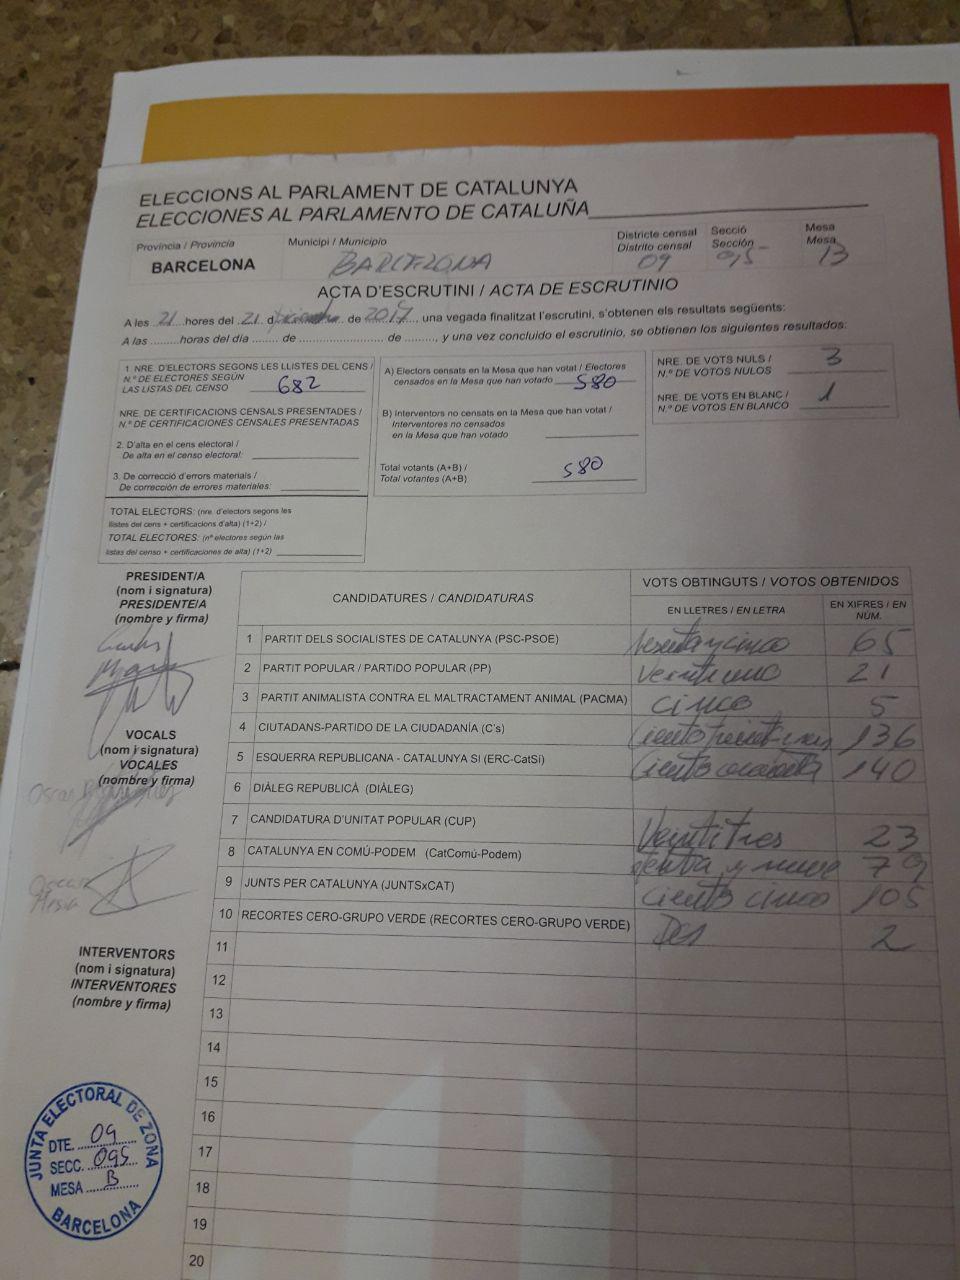 ELECCIONS AL PARLAMENT DE CATALUNYA
ELECCIONES AL PARLAMENTO DE CATALUÑA
Província / Provincia
BARCELONA
Municipi / Municipio
BARCELONA
Districte censal
Distrito censal
09
Secció
Sección
095
Mesa
Mesa
B
ACTA D'ESCRUTINI / ACTA DE ESCRUTINIO
A les 21 hores del 21 d de 2017, una vegada finalitzat l'escrutini, s'obtenen els resultats següents:
A las ......... horas del día ........ de ........................ de .........., y una vez concluido el escrutinio, se obtienen los siguientes resultados:
1 NRE. D'ELECTORS SEGONS LES LLISTES DEL CENS /
N.º DE ELECTORES SEGÚN
LAS LISTAS DEL CENSO 682
NRE. DE CERTIFICACIONS CENSALS PRESENTADES /
N.º DE CERTIFICACIONES CENSALES PRESENTADAS
2. D'alta en el cens electoral /
De alta en el censo electoral:
3. De correcció d'errors materials /
De corrección de errores materiales:
TOTAL ELECTORS: (nre. d'electors segons les
llistes del cens + certificacions d'alta) (1+2) /
TOTAL ELECTORES: (nº electores según las
listas del censo + certificaciones de alta) (1+2)
A) Electors censats en la Mesa que han votat / Electores
censados en la Mesa que han votado 580
B) Interventors no censats en la Mesa que han votat /
Interventores no censados
en la Mesa que han votado
Total votants (A+B) /
Total votantes (A+B) 580
NRE. DE VOTS NULS /
N.º DE VOTOS NULOS 3
NRE. DE VOTS EN BLANC /
N.º DE VOTOS EN BLANCO 1
PRESIDENT/A
(nom i signatura)
PRESIDENTE/A
(nombre y firma)
Carlos
VOCALS
(nom i signatura)
VOCALES
(nombre y firma)
Oscar
Oscar
INTERVENTORS
(nom i signatura)
INTERVENTORES
(nombre y firma)
CANDIDATURES / CANDIDATURAS
VOTS OBTINGUTS / VOTOS OBTENIDOS
EN LLETRES / EN LETRA
EN XIFRES / EN NÚM.
1 PARTIT DELS SOCIALISTES DE CATALUNYA (PSC-PSOE) sesenta y cinco 65
2 PARTIT POPULAR / PARTIDO POPULAR (PP) Veintiuno 21
3 PARTIT ANIMALISTA CONTRA EL MALTRACTAMENT ANIMAL (PACMA) cinco 5
4 CIUTADANS-PARTIDO DE LA CIUDADANÍA (C's) Ciento 136
5 ESQUERRA REPUBLICANA - CATALUNYA SI (ERC-CatSí) Ciento cuarenta 140
6 DIÀLEG REPUBLICÀ (DIÀLEG)
7 CANDIDATURA D'UNITAT POPULAR (CUP) Veintitres 23
8 CATALUNYA EN COMÚ-PODEM (CatComú-Podem) y nueve 79
9 JUNTS PER CATALUNYA (JUNTSxCAT) ciento cinco 105
10 RECORTES CERO-GRUPO VERDE (RECORTES CERO-GRUPO VERDE) Dos 2
11
12
13
14
15
16
17
18
19
20
JUNTA ELECTORAL DE ZONA
DTE. 09
SECC. 095
MESA B
BARCELONA